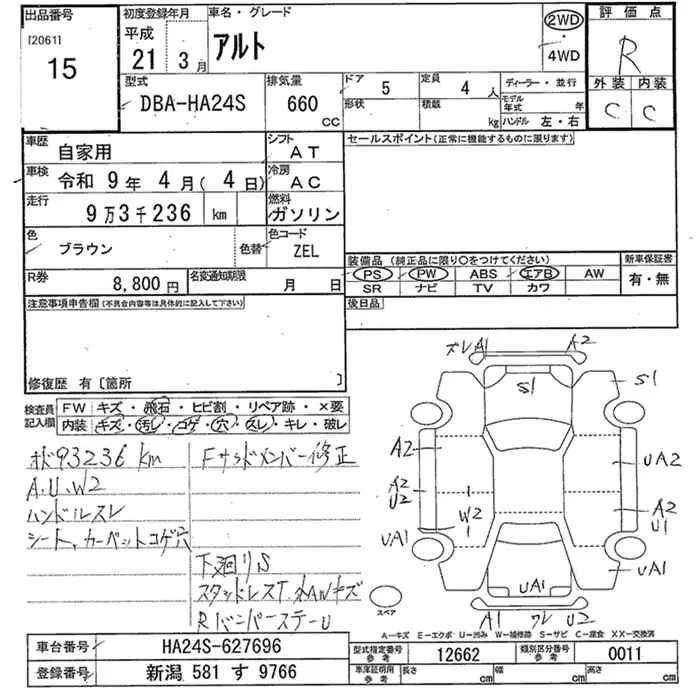 出品番号
[2061]
15
初度登録年月
平成
21 3月
車名・グレード
アルト
2WD
・
4WD
評価点
R
外装 内装
C C
型式
DBA-HA24S
排気量
660
CC
ドア
5
定員
4 人
形状
積載
kg
ディーラー・並行
モデル年式 年
ハンドル 左・右
車歴
自家用
シフト
AT
車検
令和 9年 4月( 4日)
冷房
AC
走行
9万3千236 km
燃料
ガソリン
色
ブラウン
色替
色コード
ZEL
R券
8,800円
名変通知期限
月 日
セールスポイント(正常に機能するものに限ります)
装備品 (純正品に限り○をつけてください)
新車保証書
PS PW ABS エアB AW
有・無
SR ナビ TV カワ
後日品
注意事項申告欄(不具合内容等は具体的に記入して下さい)
修復歴 有〔箇所 〕
検査員
記入欄
FW キズ・飛石・ヒビ割・リペア跡・×要
内装 キズ・汚レ・コゲ・穴・スレ・キレ・破レ
ホド93236km
A.U.W2
ハンドルスレ
シート、カーペットコゲ穴
Fサッドメンバー修正
下廻りS
スタッドレスT.ホAWキズ
Rバンパーステーひ
ズレA1
A2
S1
S1
A2
UA2
A2
U2
W2
A2
U1
UA1
UA1
UA1
A1 ワレ U2
スペア
A−キズ E−エクボ U−凹み W−補修跡 S−サビ C−腐食 XX−交換済
車台番号
HA24S-627696
登録番号
新潟 581 す 9766
型式指定番号
参考
12662
類別区分番号
参考
0011
車庫証明用
参考
長さ cm
幅 cm
高さ cm